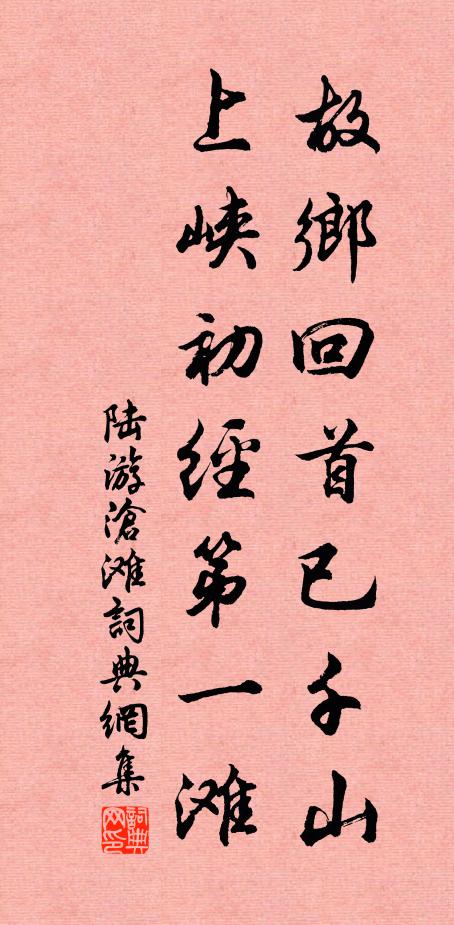 故鄉回首已千山
上峽初經第一滩
陆游滄滩詞典網集
詞典网印